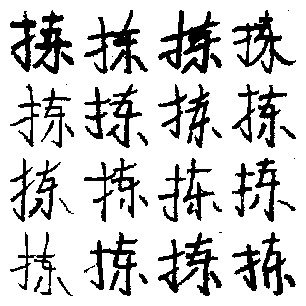 拣拣拣拣
拣拣拣拣
拣拣拣拣
拣拣拣拣